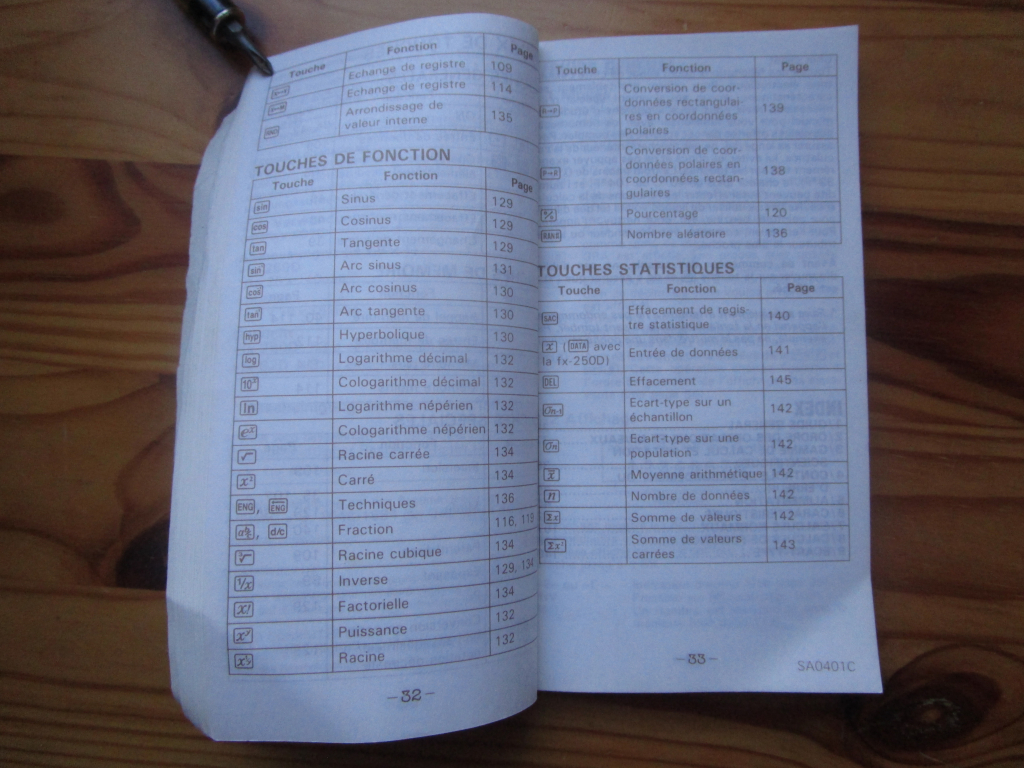 Touche Fonction Page
Echange de registre 109
Echange de registre 114
RND Arrondissage de
valeur interne 135
TOUCHES DE FONCTION
Touche Fonction Page
sin Sinus 129
cos Cosinus 129
tan Tangente 129
sin⁻¹ Arc sinus 131
cos⁻¹ Arc cosinus 130
tan⁻¹ Arc tangente 130
hyp Hyperbolique 130
log Logarithme décimal 132
10ˣ Cologarithme décimal 132
ln Logarithme népérien 132
eˣ Cologarithme népérien 132
√ Racine carrée 134
x² Carré 134
ENG, ENG Techniques 136
a b/c, d/c Fraction 116, 118
∛ Racine cubique 134
1/x Inverse 129, 134
x! Factorielle 134
xʸ Puissance 132
x^1/y Racine 132
–32–
Touche Fonction Page
R→P Conversion de coor-
données rectangulai
res en coordonnées
polaires 139
P→R Conversion de coor-
données polaires en
coordonnées rectan-
gulaires 138
% Pourcentage 120
RAN# Nombre aléatoire 136
TOUCHES STATISTIQUES
Touche Fonction Page
SAC Effacement de regis-
tre statistique 140
x (DATA avec
la fx-250D) Entrée de données 141
DEL Effacement 145
σn-1 Ecart-type sur un
échantillon 142
σn Ecart-type sur une
population 142
x̄ Moyenne arithmétique 142
n Nombre de données 142
Σx Somme de valeurs 142
Σx² Somme de valeurs
carrées 143
–33–
SA0401C